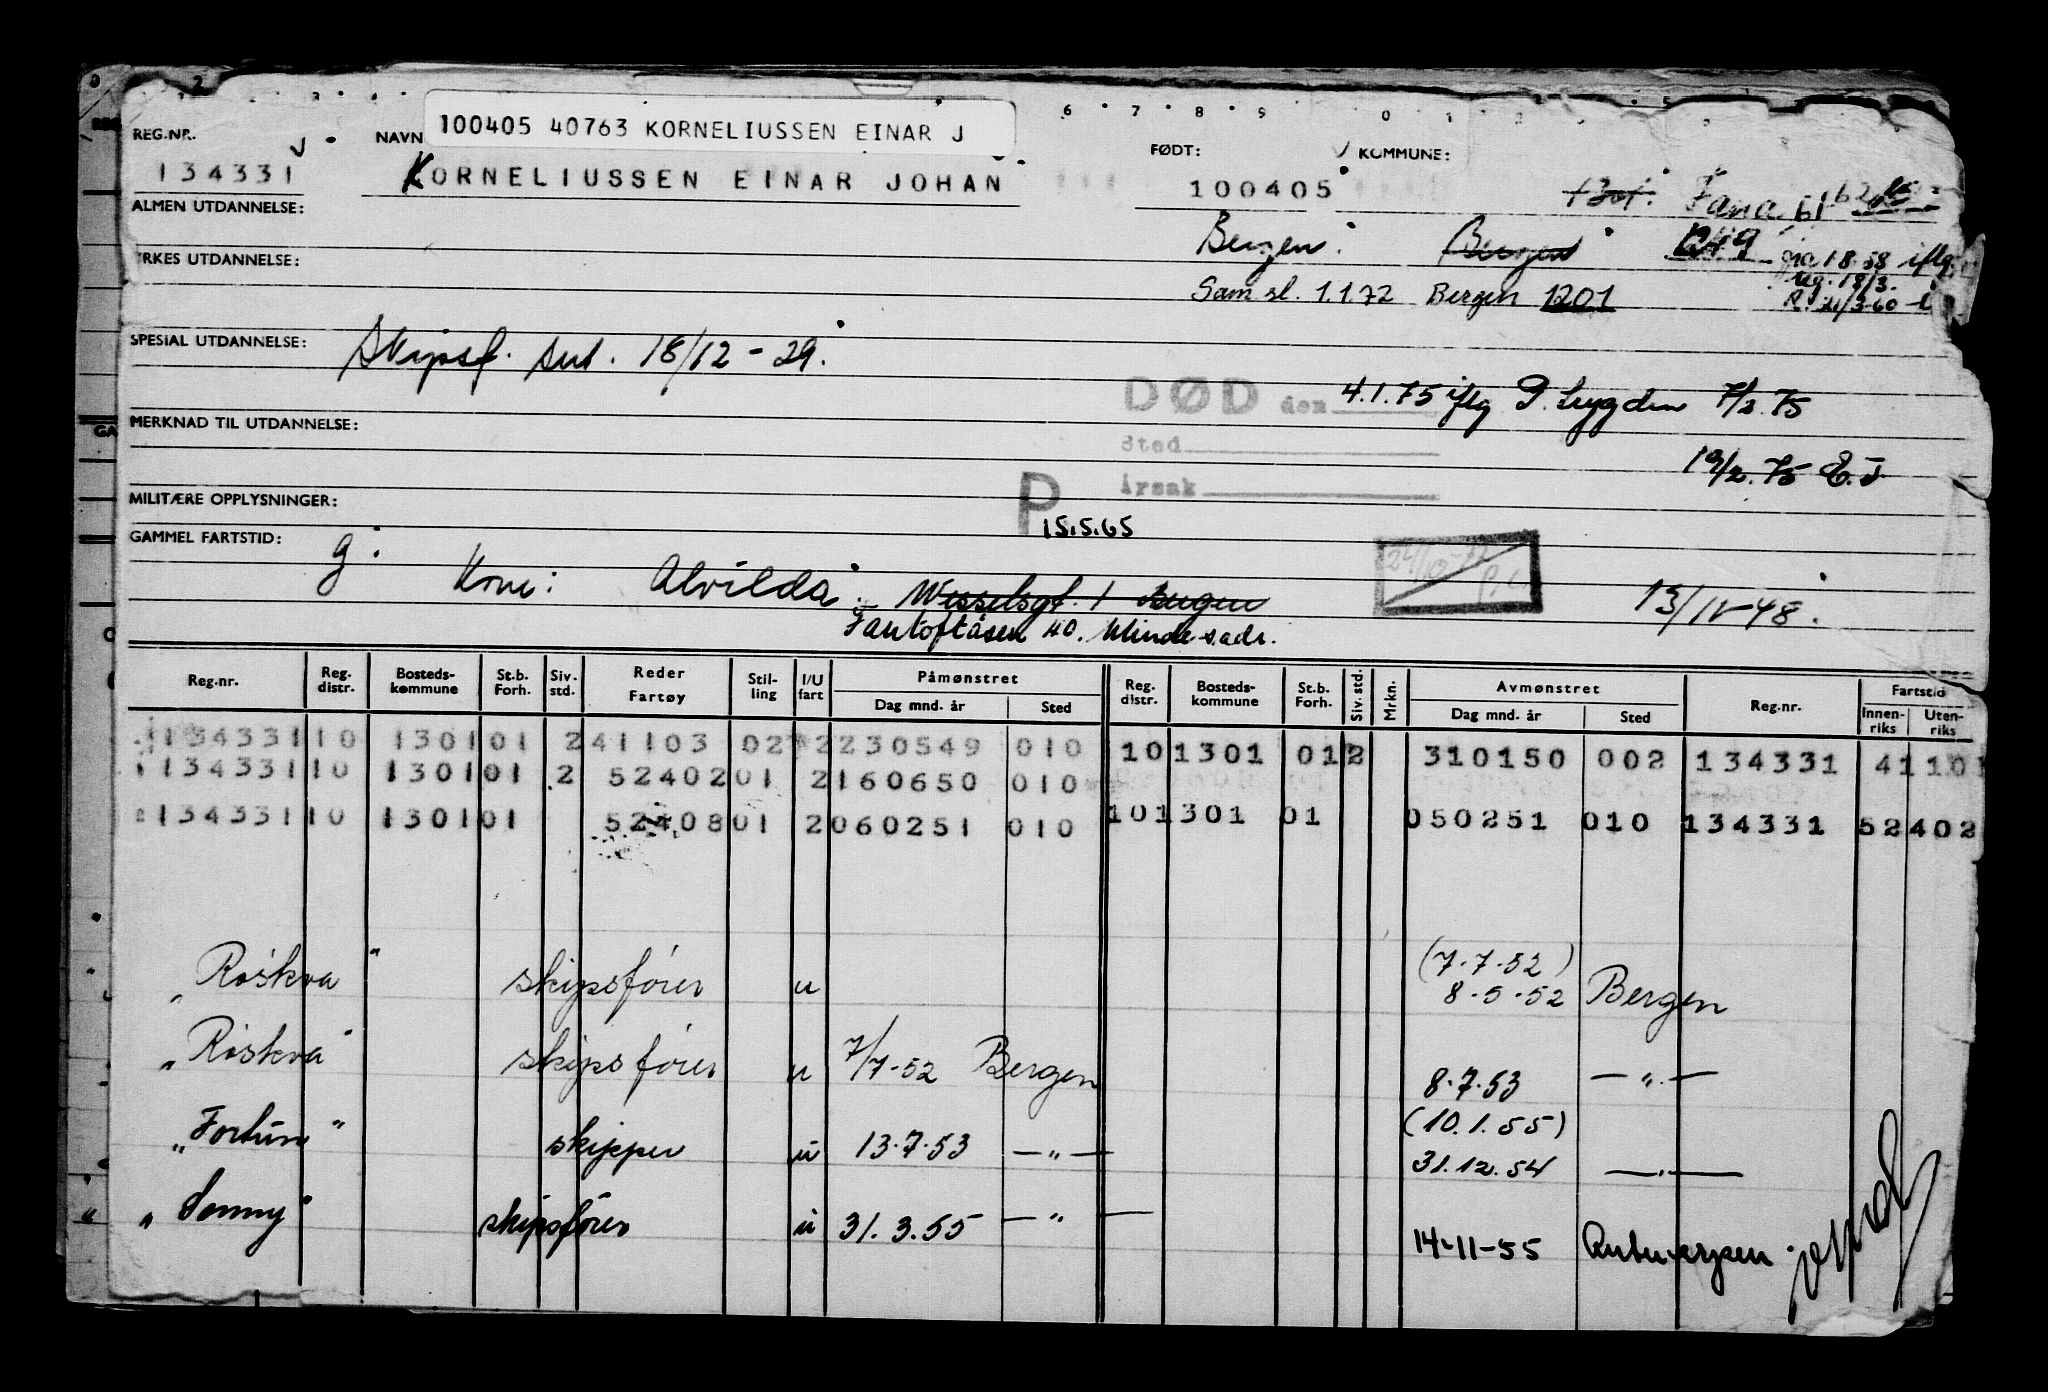 REG.NR. NAVN 100405 40763 KORNELIUSSEN EINAR J FØDT: KOMMUNE:
134331 KORNELIUSSEN EINAR JOHAN 100405 Fana 61
ALMEN UTDANNELSE:
Bergen. Bergen
YRKES UTDANNELSE:
Sam.sl. 1.1.72 Bergen 1201
SPESIAL UTDANNELSE: Skipsf. 18/12-29.
DØD den 4.1.75 iflg 7/2.75
MERKNAD TIL UTDANNELSE:
Sted
19/2.75 E.J
Årsak
MILITÆRE OPPLYSNINGER:
P 15.5.65
GAMMEL FARTSTID: g.
Kone: Alvilda. Wesselsgt. 1 Bergen 13/IV-48.
Fantoftåsen 40. Minde s.adr.
Reg.nr. Reg. distr. Bosteds-kommune St.b. Forh. Siv. std. Reder Fartøy Stil-ling I/U fart Påmønstret Dag mnd. år Sted Reg. distr. Bosteds-kommune St.b. Forh. Siv. std. Mrkn. Avmønstret Dag mnd. år Sted Reg.nr. Fartstid Innen-riks Uten-riks
134331 10 1301 01 2 41103 02 2 230549 010 10 1301 01 2 310150 002 134331 41 10
134331 10 1301 01 2 52402 01 2 160650 010
134331 10 1301 01 52408 01 2 060251 010 10 1301 01 050251 010 134331 52 402
(7.7.52)
"Røskva" skipsfører u 8-5-52 Bergen
"Røskva" skipsfører u 7/7-52 Bergen 8.7.53 —"—
(10.1.55)
"Fortun" skipper u 13.7.53 —"— 31.12.54 —"—
"Sonny" skipsfører u 31.3.55 —"— 14-11-55 Antwerpen